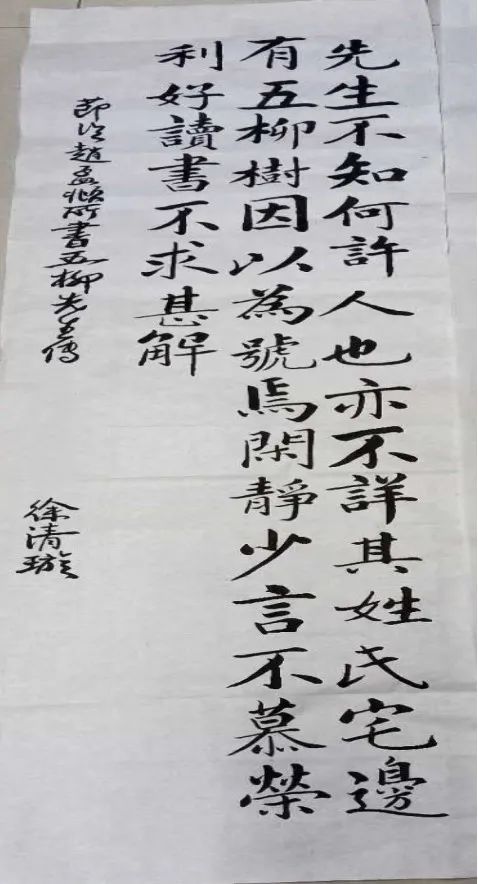 先生不知何許人也亦不詳其姓氏宅邊
有五柳樹因以為號焉閑靜少言不慕榮
利好讀書不求甚解
節臨趙孟頫所書五柳先生傳
徐清璇